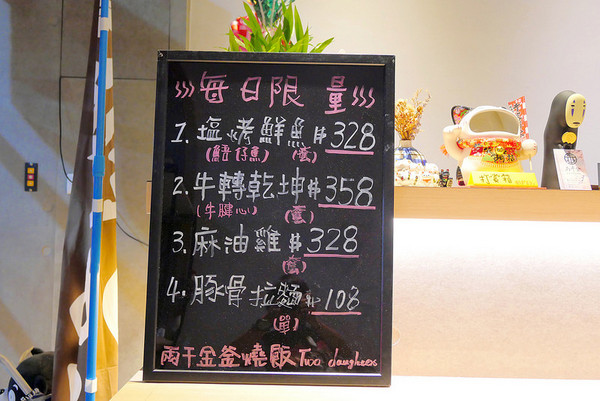 每日限量
1. 塩烤鮮魚 $328
(鯃仔魚) (套)
2. 牛轉乾坤 $358
(牛腱心) (套)
3. 麻油雞 $328
(套)
4. 豚骨拉麵 $108
(單)
兩千金釜燒飯 Two daughters
打賞箱